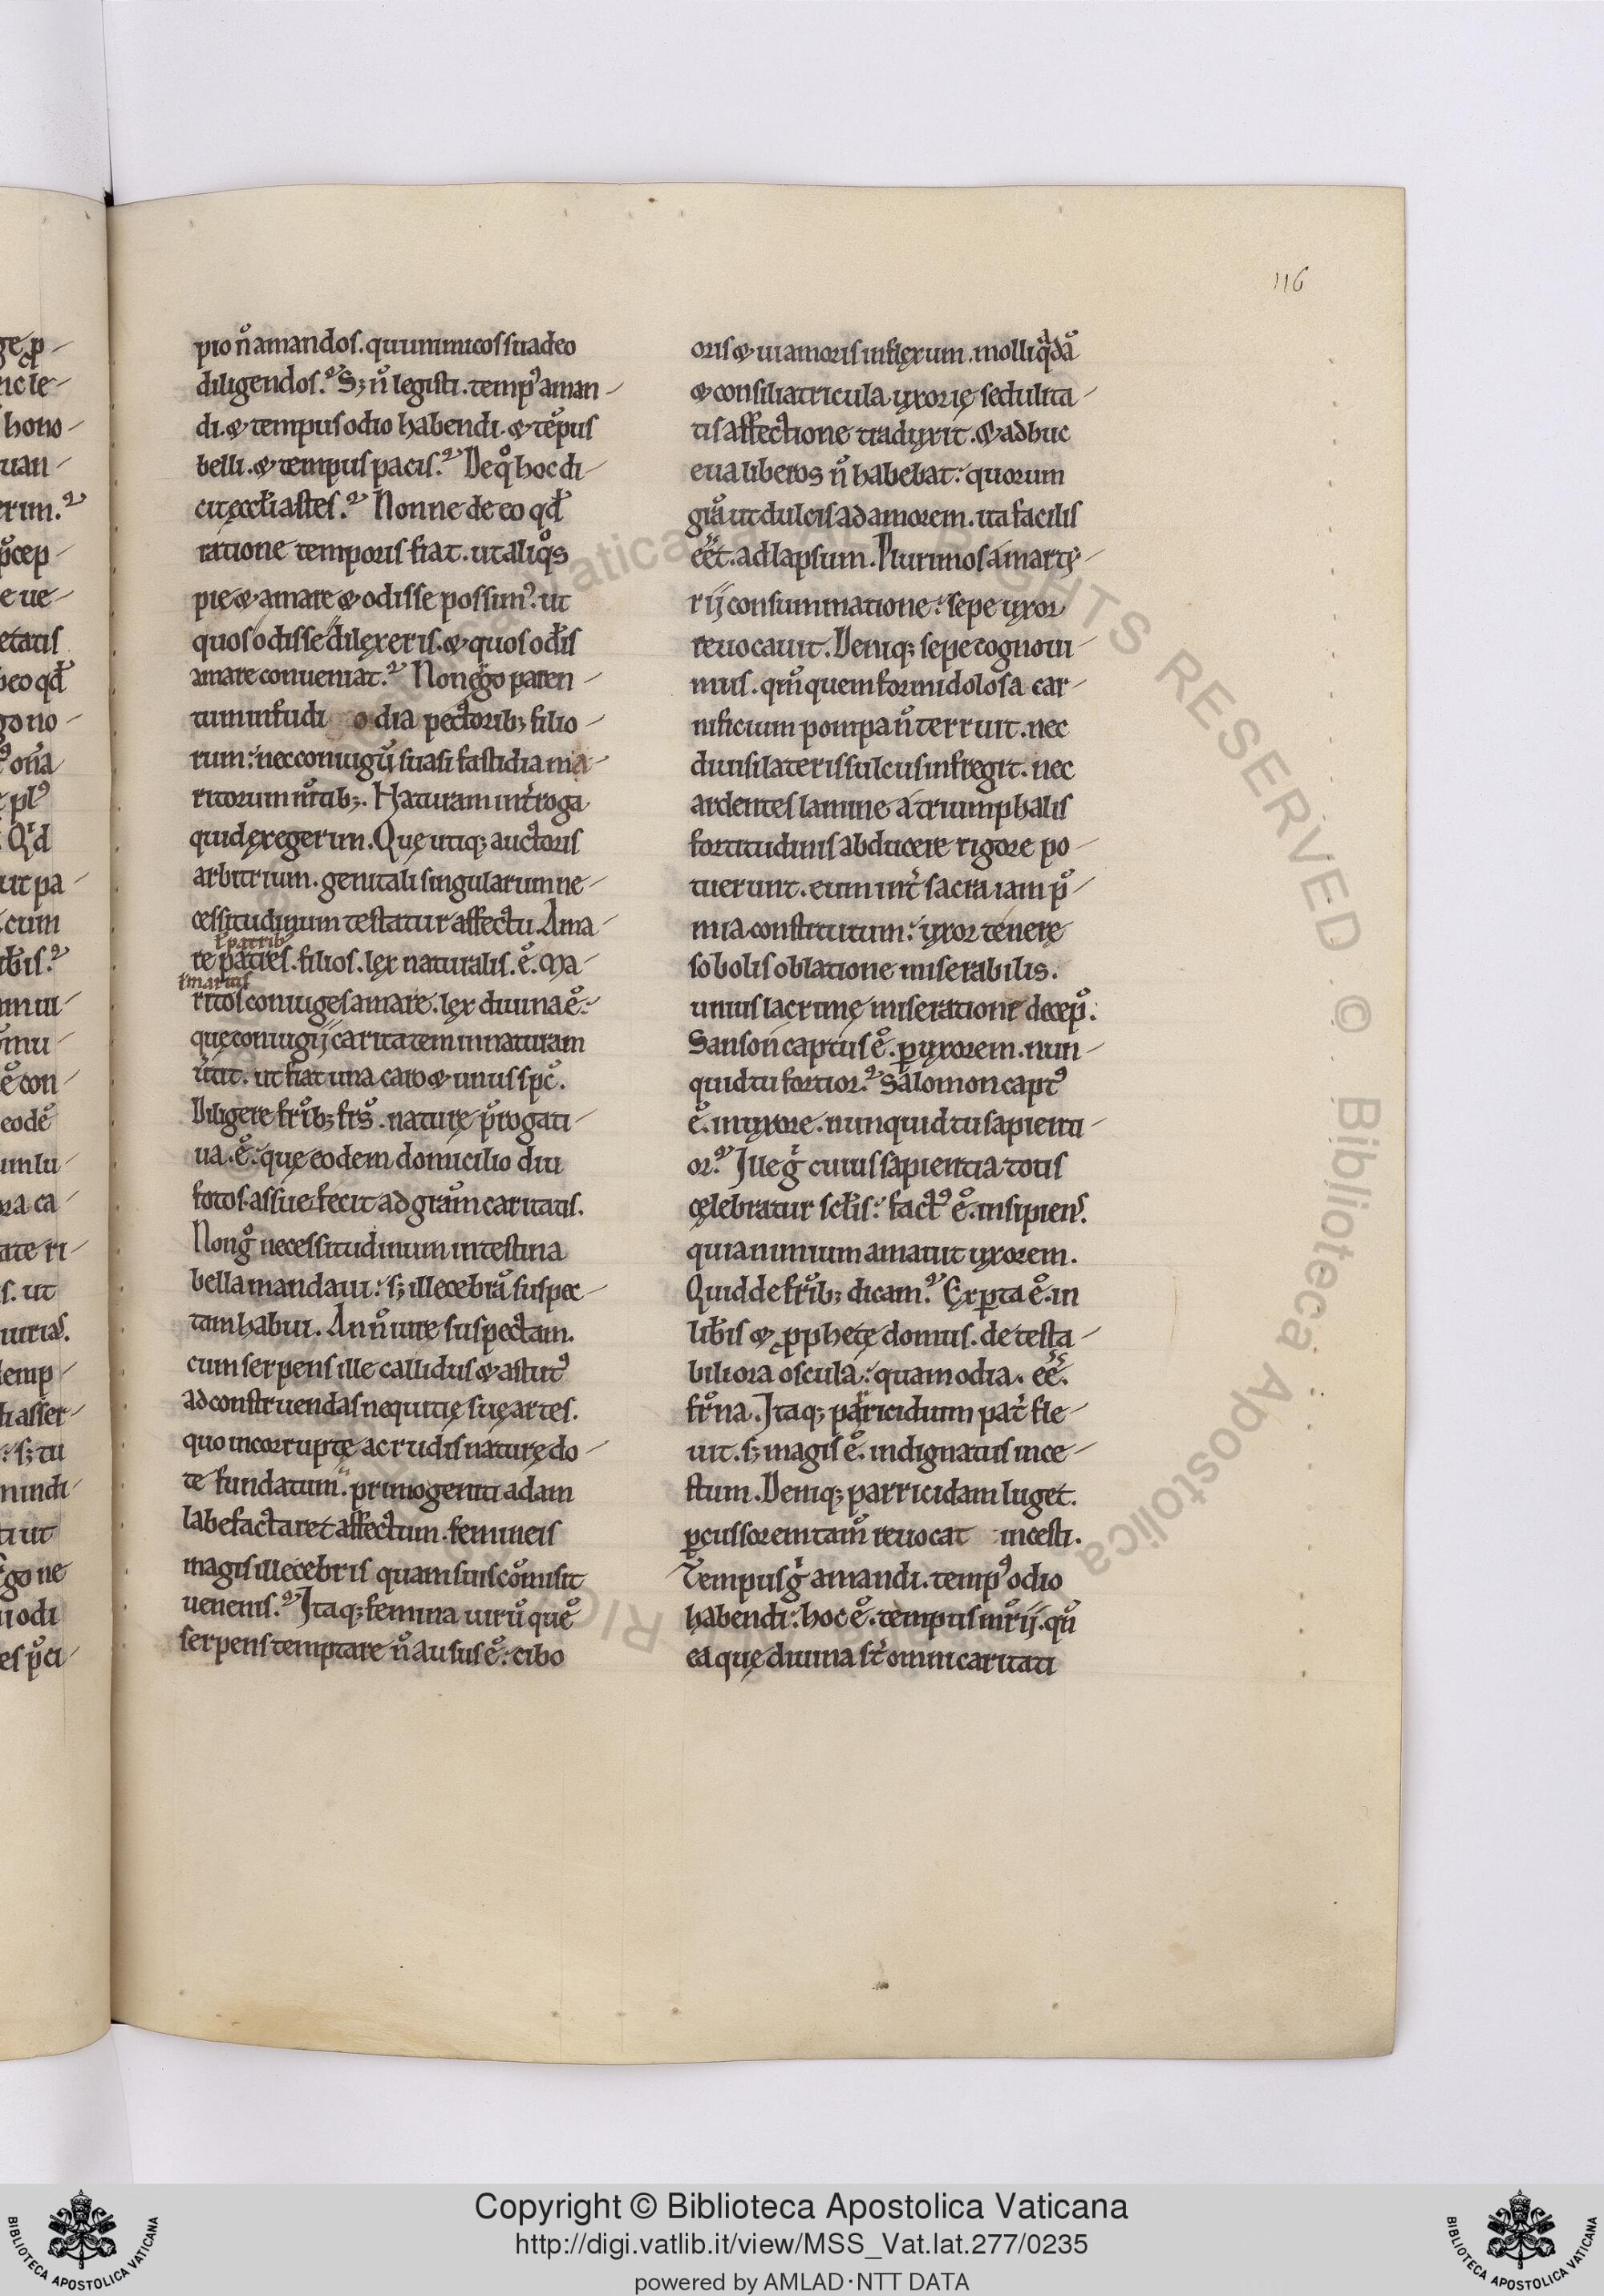 116
pio n̄ amandos. qui inimicos suadeo
diligendos.? S; n̄ legisti. temp᾽ aman-
di. & tempus odio habendi. & tēpus
belli. & tempus pacis.? De q° hoc di-
cit ęccl̄iastes.? Nonne de eo qđ
ratione temporis fiat. ut aliq°s
pie & amare & odisse possim᾽. ut
quos odisse dilexeris. & quos odis
amare conueniat.? Non ergo paren-
tum infudi odia pectorib; filio-
rum: nec coniugū suasi fastidia ma-
ritorum m̄tib;. Naturam int̄roga
quid exegerim. Quę utiq; auctoris
arbitrium. genitali singularum ne-
cessitudinum testatur affectu. Ama-
ł patrib᾽
re patres. filios. lex naturalis. ē. Ma-
ł maritis
ritos coniuges amare. lex diuina ē:
quę coniugij caritatem in naturam
u̅tit. ut fiat una caro & unus sp̄c.
Diligere fr̄ib; fr̄s. naturę p̄rogati-
ua. ē: quę eodem domicilio diu
fotos. assuefecit ad gr̄am caritatis.
Non g° necessitudinum intestina
bella mandaui: s; illecebrā suspec-
tam habui. An n̄ iure suspectam.
cum serpens ille callidus & astut᾽
ad construendas nequitię suę artes.
quo incorruptę ac rudis naturę do-
te fundatum. primogeniti adam
labefactaret affectum. femineis
magis illecebris quam suis cōmisit
uenenis.? Itaq; femina uirū quē
serpens temptare n̄ ausus ē: cibo
oris & ui amoris inflexum. molli q̄dā
& consiliatricula uxorię sedulita-
tis affectione traduxit. & adhuc
eua liberos n̄ habebat: quorum
gr̄a ut dulcis ad amorem. ita facilis
eēt. ad lapsum. Plurimos a marty-
rij consummatione: sepe uxor
reuocauit. Deniq; sepe cognoui-
mus. qm̄ quem formidolosa car-
nificium pompa n̄ terruit. nec
duri si lateris sulcus infregit. nec
ardentes lamine a triumphalis
fortitudinis abducere rigore po-
tuerunt. eum int̄ sacra iam p̄-
mia constitutum: uxor tenerę
sobolis oblatione miserabilis.
unius lacrimę miseratione decep̄:
Sanson captus ē. ꝑ uxorem. nun-
quid tu fortior.? Salomon capt᾽
ē. in uxore. nunquid tu sapienti-
or.? Ille ḡ cuius sapientia totis
celebratur sc̄lis: fact᾽ ē. insipiens.
quia nimium amauit uxorem.
Quid de fr̄ib; dicam.? Exꝑta ē. in
lib̄is & ꝓphetę domus. detesta-
biliora oscula: quam odia. eē.
fr̄na. Itaq; parricidium pat̄ fle-
uit. s; magis ē. indignatus ince-
stum. Deniq; parricidam luget.
ꝑcussorem tam̄ reuocat incesti.
Tempus ḡ amandi. temp᾽ odio
habendi: hoc ē. tempus mr̄ij. qn̄
ea quę diuina st̄ omni caritati
Copyright © Biblioteca Apostolica Vaticana
http://digi.vatlib.it/view/MSS_Vat.lat.277/0235
powered by AMLAD·NTT DATA